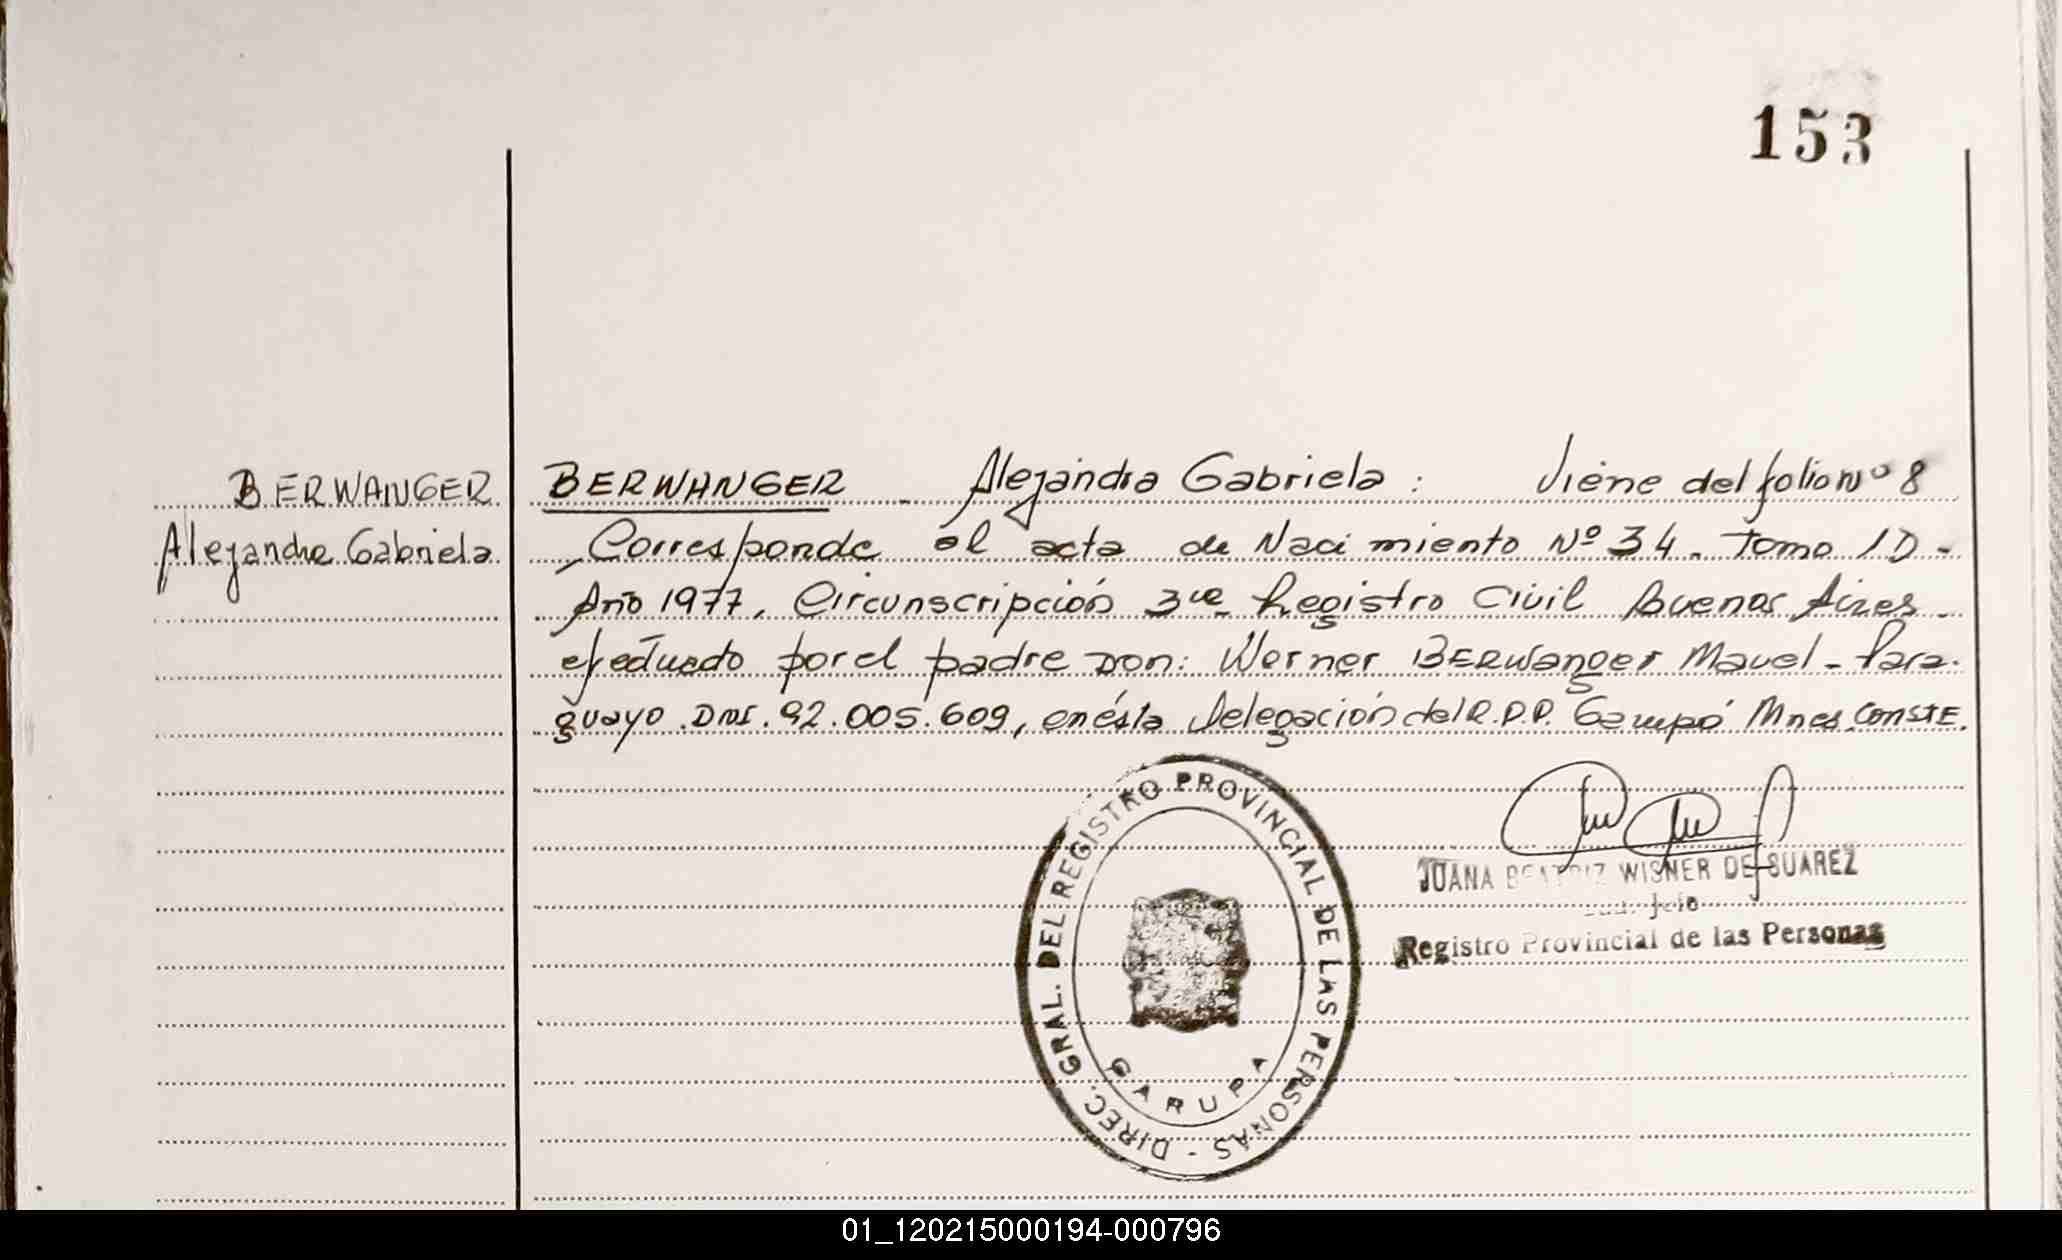 153
BERWANGER
Alejandra Gabriela
BERWANGER Alejandra Gabriela: Viene del folio Nº 8
Corresponde al acta de Nacimiento Nº 34. Tomo 1D -
Año 1977, Circunscripción 3ra Registro Civil Buenos Aires
efectuado por el padre Don: Werner BERWanger - Para
guayo. DNI. 92.005.609, en ésta Delegación del R.P.P. Garupá Mnes. CONSTE.
JUANA BEATRIZ WISNER DE SUAREZ
Jefe
Registro Provincial de las Personas
DIREC. GRAL. DEL REGISTRO PROVINCIAL DE LAS PERSONAS -
GARUPA
01_120215000194-000796